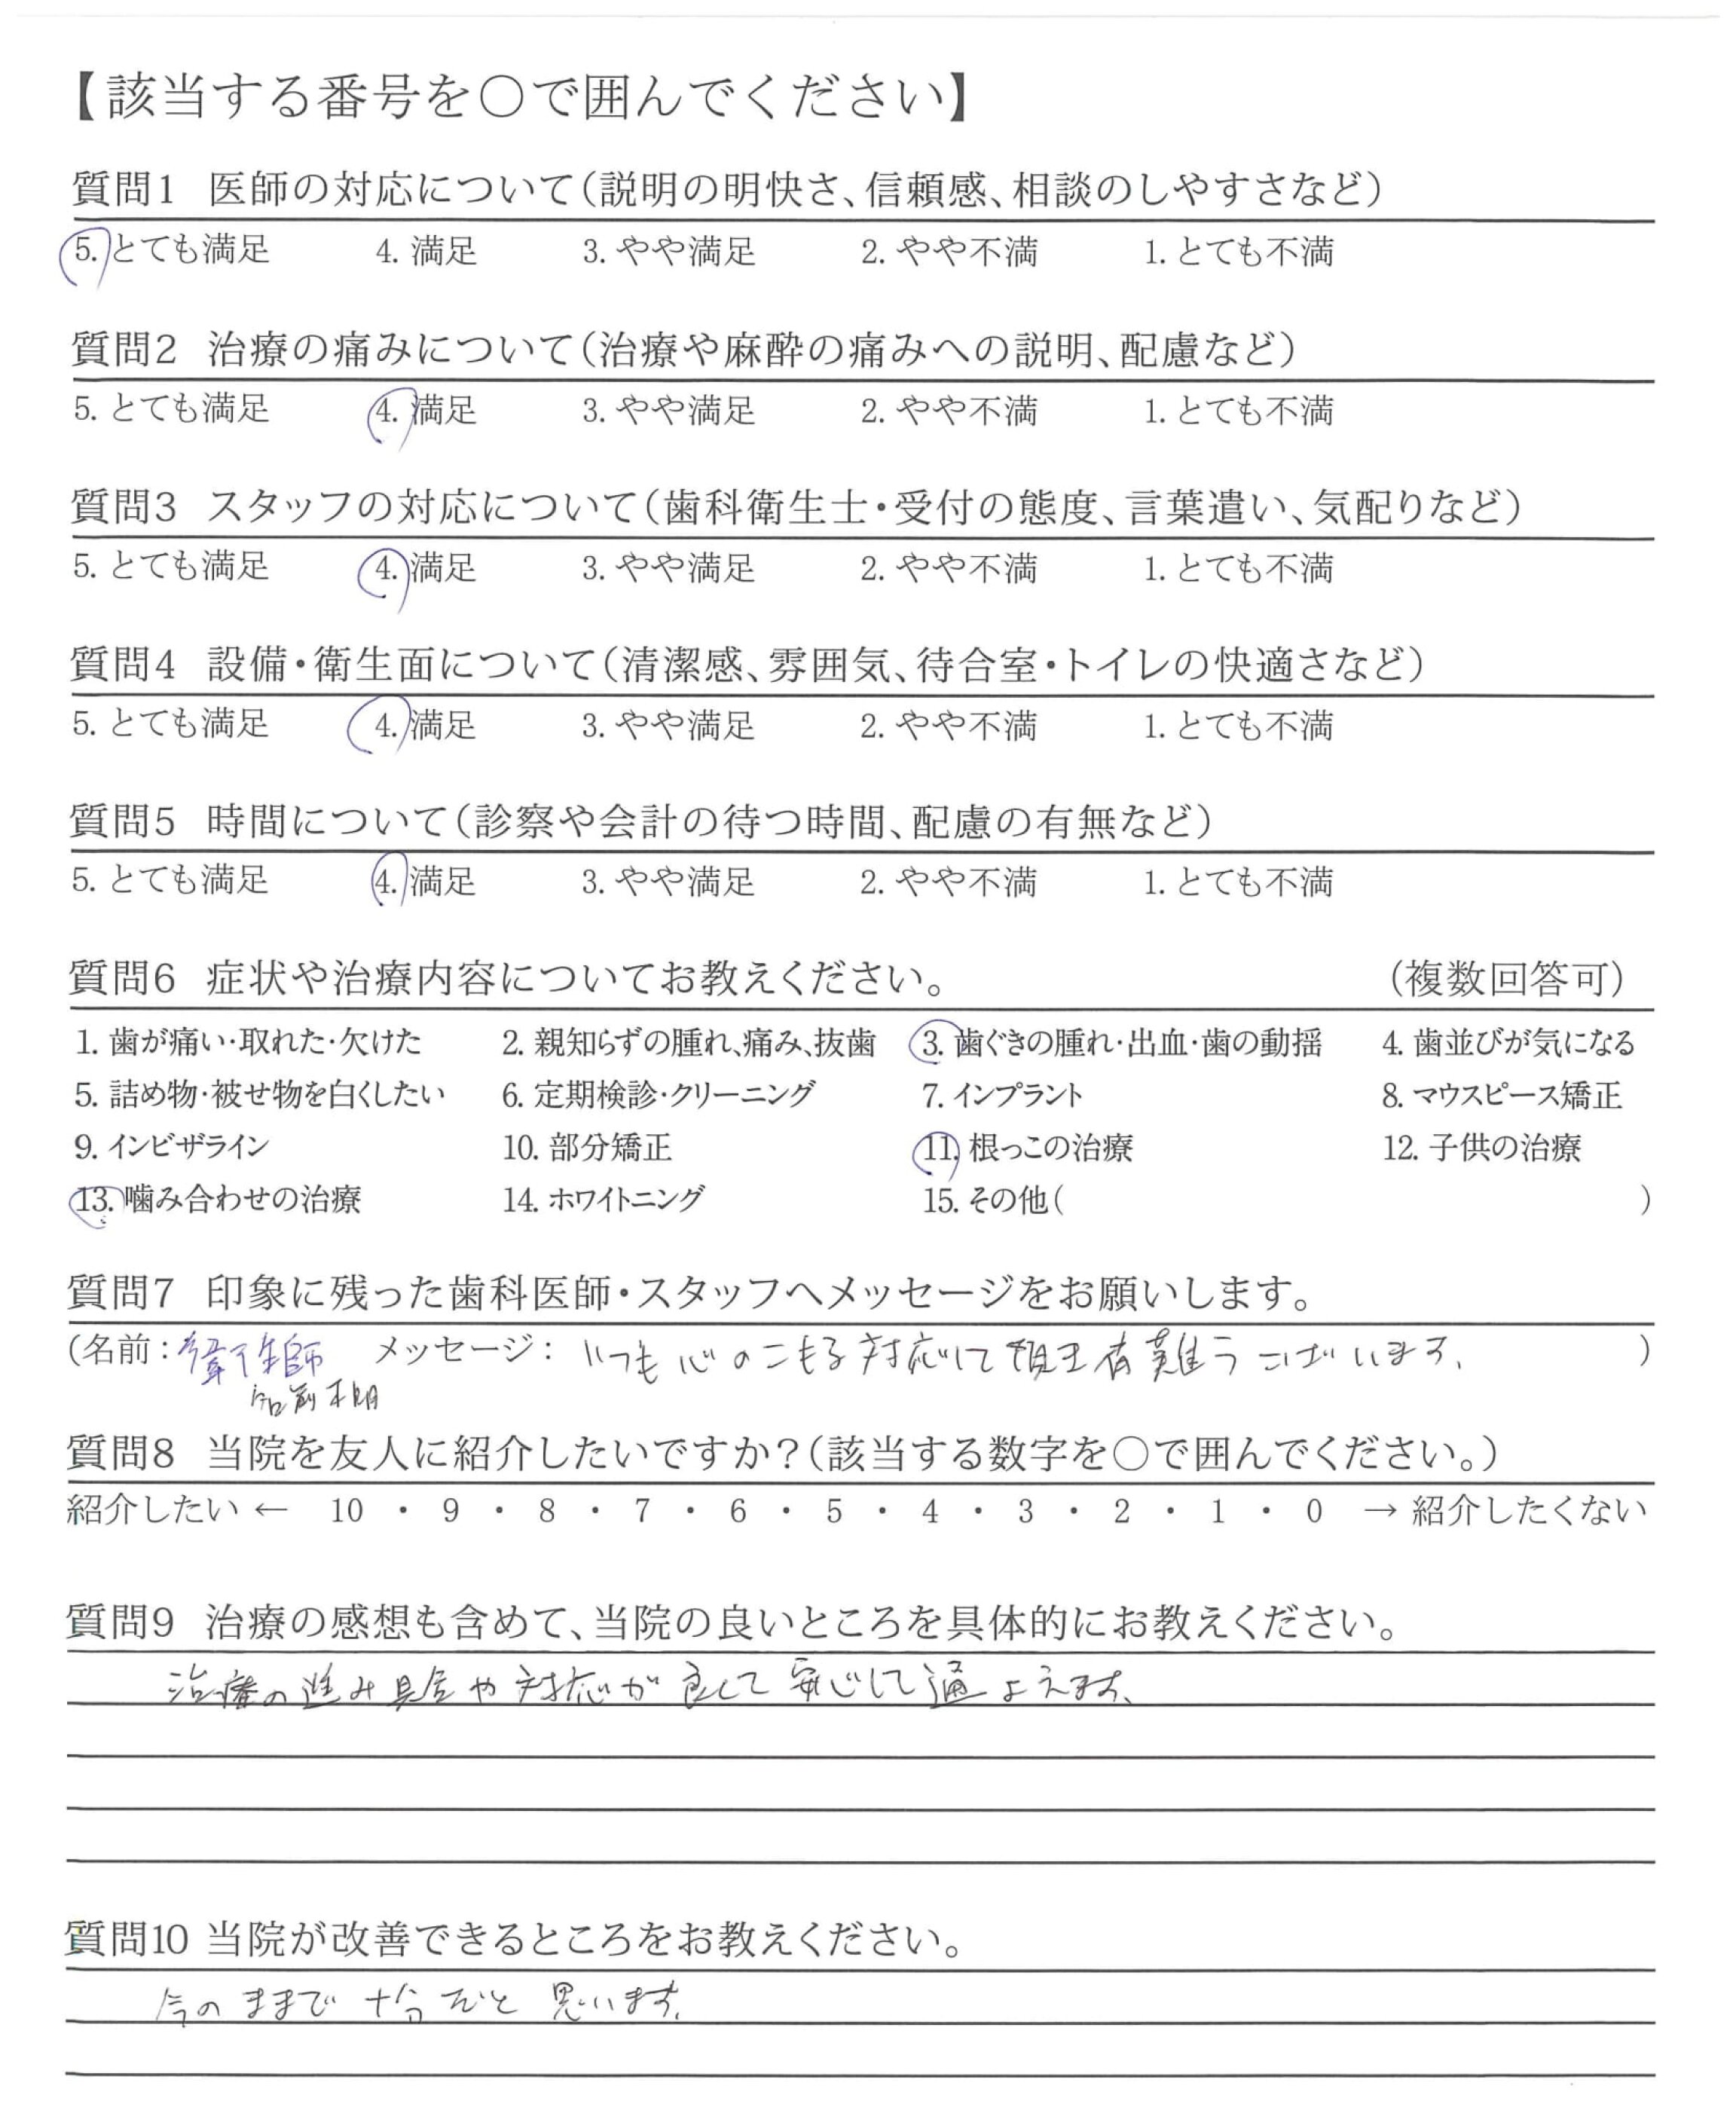 【該当する番号を○で囲んでください】
質問1 医師の対応について(説明の明快さ、信頼感、相談のしやすさなど)
5. とても満足 4. 満足 3. やや満足 2. やや不満 1. とても不満
質問2 治療の痛みについて(治療や麻酔の痛みへの説明、配慮など)
5. とても満足 4. 満足 3. やや満足 2. やや不満 1. とても不満
質問3 スタッフの対応について(歯科衛生士・受付の態度、言葉遣い、気配りなど)
5. とても満足 4. 満足 3. やや満足 2. やや不満 1. とても不満
質問4 設備・衛生面について(清潔感、雰囲気、待合室・トイレの快適さなど)
5. とても満足 4. 満足 3. やや満足 2. やや不満 1. とても不満
質問5 時間について(診察や会計の待つ時間、配慮の有無など)
5. とても満足 4. 満足 3. やや満足 2. やや不満 1. とても不満
質問6 症状や治療内容についてお教えください。 (複数回答可)
1. 歯が痛い・取れた・欠けた 2. 親知らずの腫れ、痛み、抜歯 3. 歯ぐきの腫れ・出血・歯の動揺 4. 歯並びが気になる
5. 詰め物・被せ物を白くしたい 6. 定期検診・クリーニング 7. インプラント 8. マウスピース矯正
9. インビザライン 10. 部分矯正 11. 根っこの治療 12. 子供の治療
13. 噛み合わせの治療 14. ホワイトニング 15. その他( )
質問7 印象に残った歯科医師・スタッフへメッセージをお願いします。
(名前:衛生師 メッセージ: いつも心のこもる対応して頂き有難うございます。 )
名前不明
質問8 当院を友人に紹介したいですか?(該当する数字を○で囲んでください。)
紹介したい ← 10 ・ 9 ・ 8 ・ 7 ・ 6 ・ 5 ・ 4 ・ 3 ・ 2 ・ 1 ・ 0 → 紹介したくない
質問9 治療の感想も含めて、当院の良いところを具体的にお教えください。
治療の進み具合や対応が良くて安心して通よえます。
質問10 当院が改善できるところをお教えください。
今のままで十分だと思います。